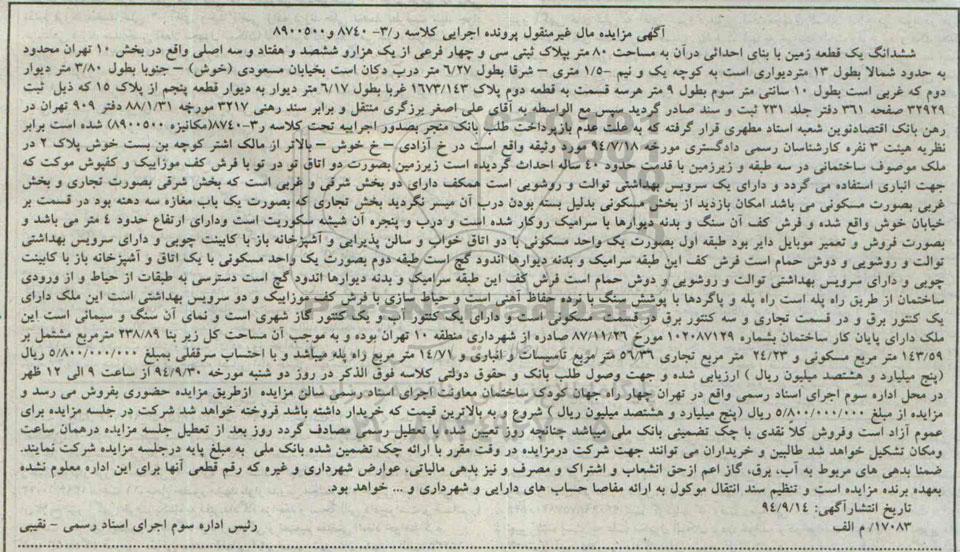 آگهی مزایده مال غیرمنقول پرونده اجرایی کلاسه ر/۳- ۸۷۴۰ و۸۹۰۰۵۰۰
ششدانگ یک قطعه زمین با بنای احداثی درآن به مساحت ۸۰ متر بپلاک ثبتی سی و چهار فرعی از یک هزارو ششصد و هفتاد و سه اصلی واقع در بخش ۱۰ تهران محدود
به حدود شمالا بطول ۱۳ متردیواری است به کوچه یک و نیم -۱/۵ متری – شرقا بطول ۶/۲۷ متر درب دکان است بخیابان مسعودی (خوش) – جنوبا بطول ۳/۸۰ متر دیوار
دوم که غربی است بطول ۱۰ سانتی متر سوم بطول ۹ متر هرسه قسمت به قطعه دوم پلاک ۱۶۷۳/۱۴۳ غربا بطول ۶/۱۷ متر دیوار به دیوار قطعه پنجم از پلاک ۱۵ که ذیل ثبت
۳۲۹۲۹ صفحه ۳۶۱ دفتر جلد ۲۳۱ ثبت و سند صادر گردید سپس مع الواسطه به آقای علی اصغر برزگری منتقل و برابر سند رهنی ۳۲۱۷ مورخه ۸۸/۱/۳۱ دفتر ۹۰۹ تهران در
رهن بانک اقتصادنوین شعبه استاد مطهری قرار گرفته که به علت عدم بازپرداخت طلب بانک منجر بصدور اجراییه تحت کلاسه ر۳-۸۷۴۰(مکانیزه ۸۹۰۰۵۰۰) شده است برابر
نظریه هیئت ۳ نفره کارشناسان رسمی دادگستری مورخه ۹۴/۷/۱۸ مورد وثیقه واقع است در خ آزادی – خ خوش – بالاتر از مالک اشتر کوچه بن بست خوش پلاک ۲ در
ملک موصوف ساختمانی در سه طبقه و زیرزمین با قدمت حدود ۴۰ ساله احداث گردیده است زیرزمین بصورت دو اتاق تو در تو با فرش کف موزاییک و کفپوش موکت که
جهت انباری استفاده می گردد و دارای یک سرویس بهداشتی توالت و روشویی است همکف دارای دو بخش شرقی و غربی است که بخش شرقی بصورت تجاری و بخش
غربی بصورت مسکونی می باشد امکان بازدید از بخش مسکونی بدلیل بسته بودن درب آن میسر نگردید بخش تجاری که بصورت یک باب مغازه سه دهنه بود در قسمت بر
خیابان خوش واقع شده و فرش کف آن سنگ و بدنه دیوارها با سرامیک روکار شده است و درب و پنجره آن شیشه سکوریت است ودارای ارتفاع حدود ۴ متر می باشد و
بصورت فروش و تعمیر موبایل دایر بود طبقه اول بصورت یک واحد مسکونی با دو اتاق خواب و سالن پذیرایی و آشپزخانه باز با کابینت چوبی و دارای سرویس بهداشتی
توالت و روشویی و دوش حمام است فرش کف این طبقه سرامیک و بدنه دیوارها اندود گچ است طبقه دوم بصورت یک واحد مسکونی با یک اتاق و آشپزخانه باز با کابینت
چوبی و دارای سرویس بهداشتی توالت و روشویی و دوش حمام است فرش کف این طبقه سرامیک و بدنه دیوارها اندود گچ است دسترسی به طبقات از حیاط و از ورودی
ساختمان از طریق راه پله است راه پله و پاگردها با پوشش سنگ با نرده حفاظ آهنی است و حیاط سازی با فرش کف موزاییک و دو سرویس بهداشتی است این ملک دارای
یک کنتور برق و در قسمت تجاری و سه کنتور برق در قسمت مسکونی است و دارای یک کنتور آب و یک کنتور گاز شهری است و نمای آن سنگ و سیمانی است این
ملک دارای پایان کار ساختمان بشماره ۱۰۲۰۸۷۱۲۹ مورخ ۸۷/۱۱/۲۶ صادره از شهرداری منطقه ۱۰ تهران بوده و به موجب آن مساحت کل زیر بنا ۲۳۸/۸۹ مترمربع مشتمل بر
۱۴۳/۵۹ متر مربع مسکونی و ۲۴/۲۳ متر مربع تجاری ۵۶/۳۶ متر مربع تاسیسات و انباری و ۱۴/۷۱ متر مربع راه پله میباشد و با احتساب سرقفلی بمبلغ ۵/۸۰۰/۰۰۰/۰۰۰ ریال
(پنج میلیارد و هشتصد میلیون ریال ) ارزیابی شده و جهت وصول طلب بانک و حقوق دولتی کلاسه فوق الذکر در روز دو شنبه مورخه ۹۴/۹/۳۰ از ساعت ۹ الی ۱۲ ظهر
در محل اداره سوم اجرای اسناد رسمی واقع در تهران چهارراه جهان کودک ساختمان معاونت اجرای اسناد رسمی سالن مزایده ازطریق مزایده حضوری بفروش می رسد و
مزایده از مبلغ ۵/۸۰۰/۰۰۰/۰۰۰ ریال (پنج میلیارد و هشتصد میلیون ریال ) شروع و به بالاترین قیمت که خریدار داشته باشد فروخته خواهد شد شرکت در جلسه مزایده برای
عموم آزاد است وفروش کلا نقدی با چک تضمینی بانک ملی میباشد چنانچه روز تعیین شده با تعطیل رسمی مصادف گردد روز بعد از تعطیل جلسه مزایده درهمان ساعت
ومکان تشکیل خواهد شد طالبین و خریداران می توانند جهت شرکت درمزایده در وقت مقرر با ارائه چک تضمین شده بانک ملی به مبلغ پایه درجلسه مزایده شرکت نمایند.
ضمنا بدهی های مربوط به آب، برق، گاز اعم ازحق انشعاب و اشتراک و مصرف و نیز بدهی مالیاتی، عوارض شهرداری و غیره که رقم قطعی آنها برای این اداره معلوم نشده
بعهده برنده مزایده است و تنظیم سند انتقال موکول به ارائه مفاصا حساب های دارایی و شهرداری و ... خواهد بود.
تاریخ انتشارآگهی: ۹۴/۹/۱۴
۱۷۰۸۳/ م الف
رئیس اداره سوم اجرای اسناد رسمی - نقیبی